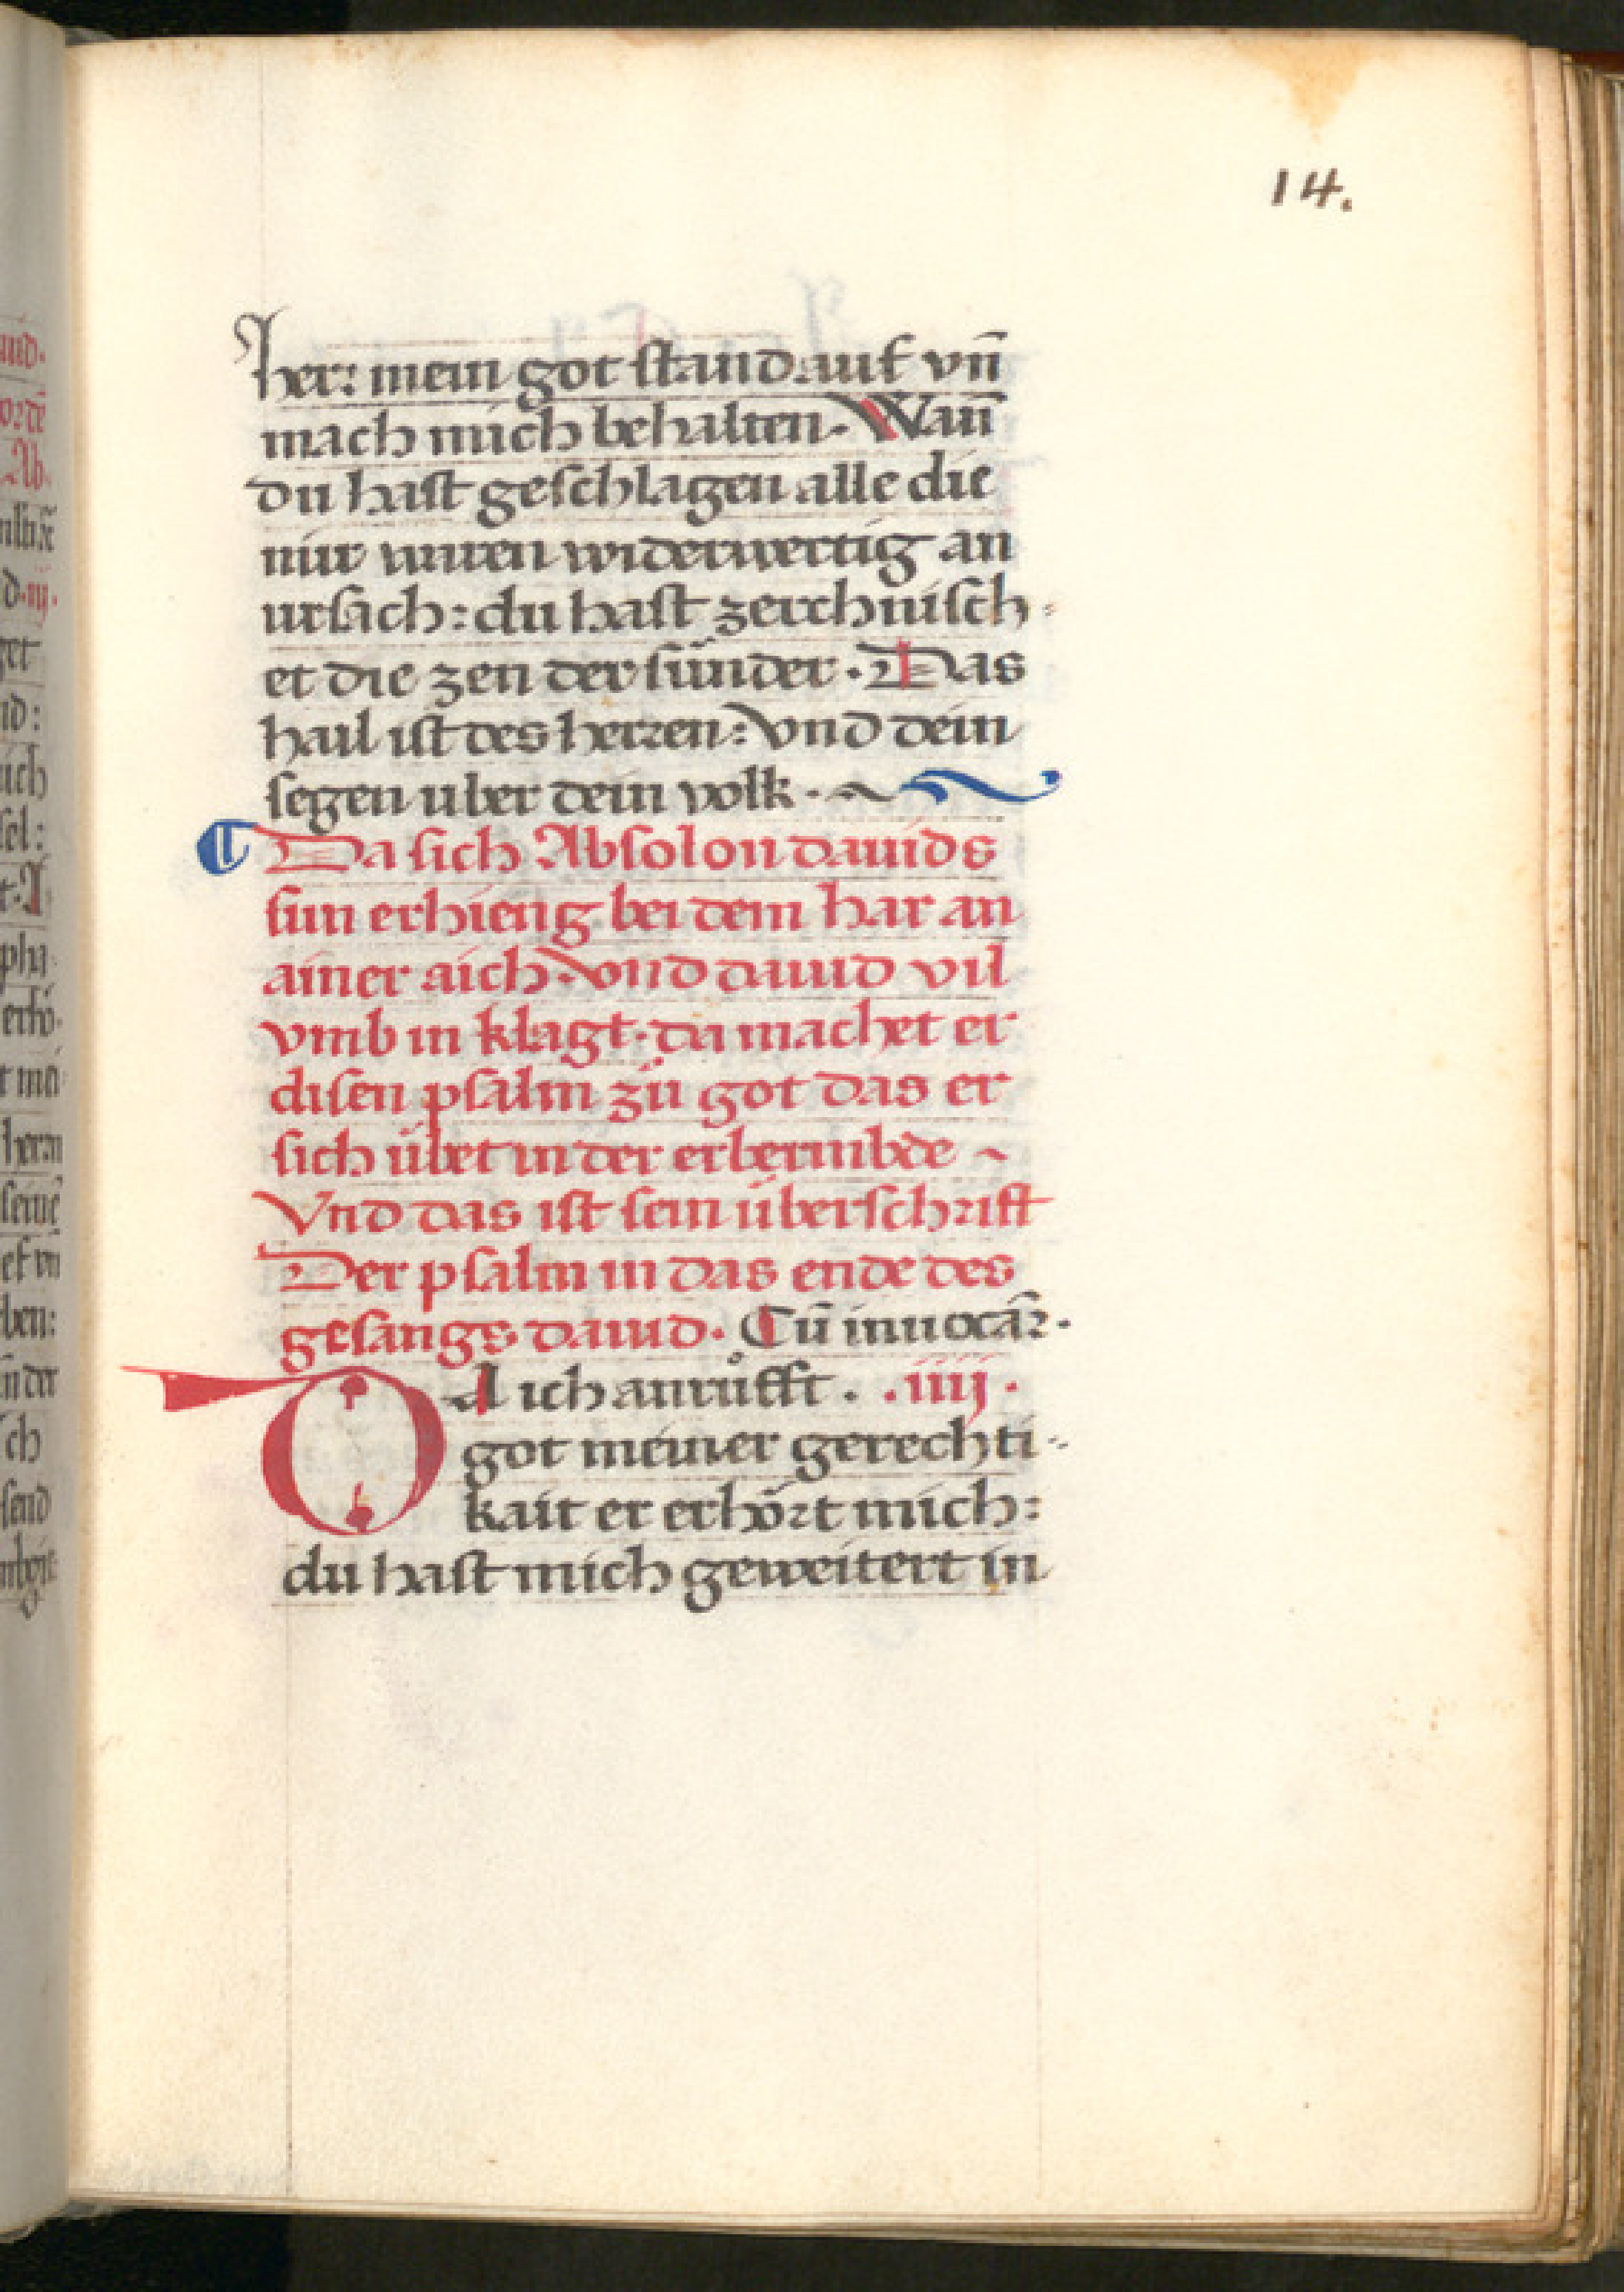 14.
her: mein got stand auf vn̄
mach mich behalten. Wan̄
du hast geschlagen alle die
mir wuren widerwertig an
ursach: du hast zerchnisch-
et die zen der sünder. Das
hail ist des herren: vnd dein
segen uber dein volk.
Da sich Absolon dauids
sun erhieng bei dem har an
ainer aich. vnd dauid vil
vmb in klagt. da machet er
disen psalm zü got das er
sich übet in der erbermbde ~
Vnd das ist sein überschrift
Der psalm in das ende des
gesangs dauid. Cū inuocār.
DA ich anrůfft. .iiij.
got meiner gerechti-
kait er erhört mich:
du hast mich geweitert in